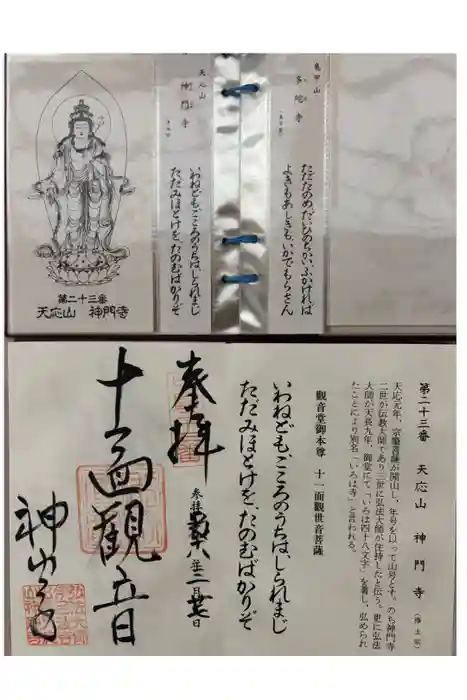 亀甲山
多陀寺
ただたのめ、だいひのちかい、ふかければ
よきもあしきも、いかでもらさん
天応山
神門寺
いわねども、こころのうちは、しられまじ
ただみほとけを、たのむばかりぞ
第二十三番
天応山 神門寺
第二十三番 天応山 神門寺 (浄土宗)
天応元年、宗肇菩薩が開山し、年号を以って山号とす。のち神門寺
二世が伝教大師であり三世に弘法大師が住持したと伝う。更に弘法
大師が天長九年、御堂にて「いろは四十八文字」を書し、弘められ
たことにより別名「いろは寺」と言われる。
観音堂御本尊 十一面観世音菩薩
いわねども、こころのうちは、しられまじ
ただみほとけを、たのむばかりぞ
奉拝
参拝
年二月
日
十一面観音
神門寺